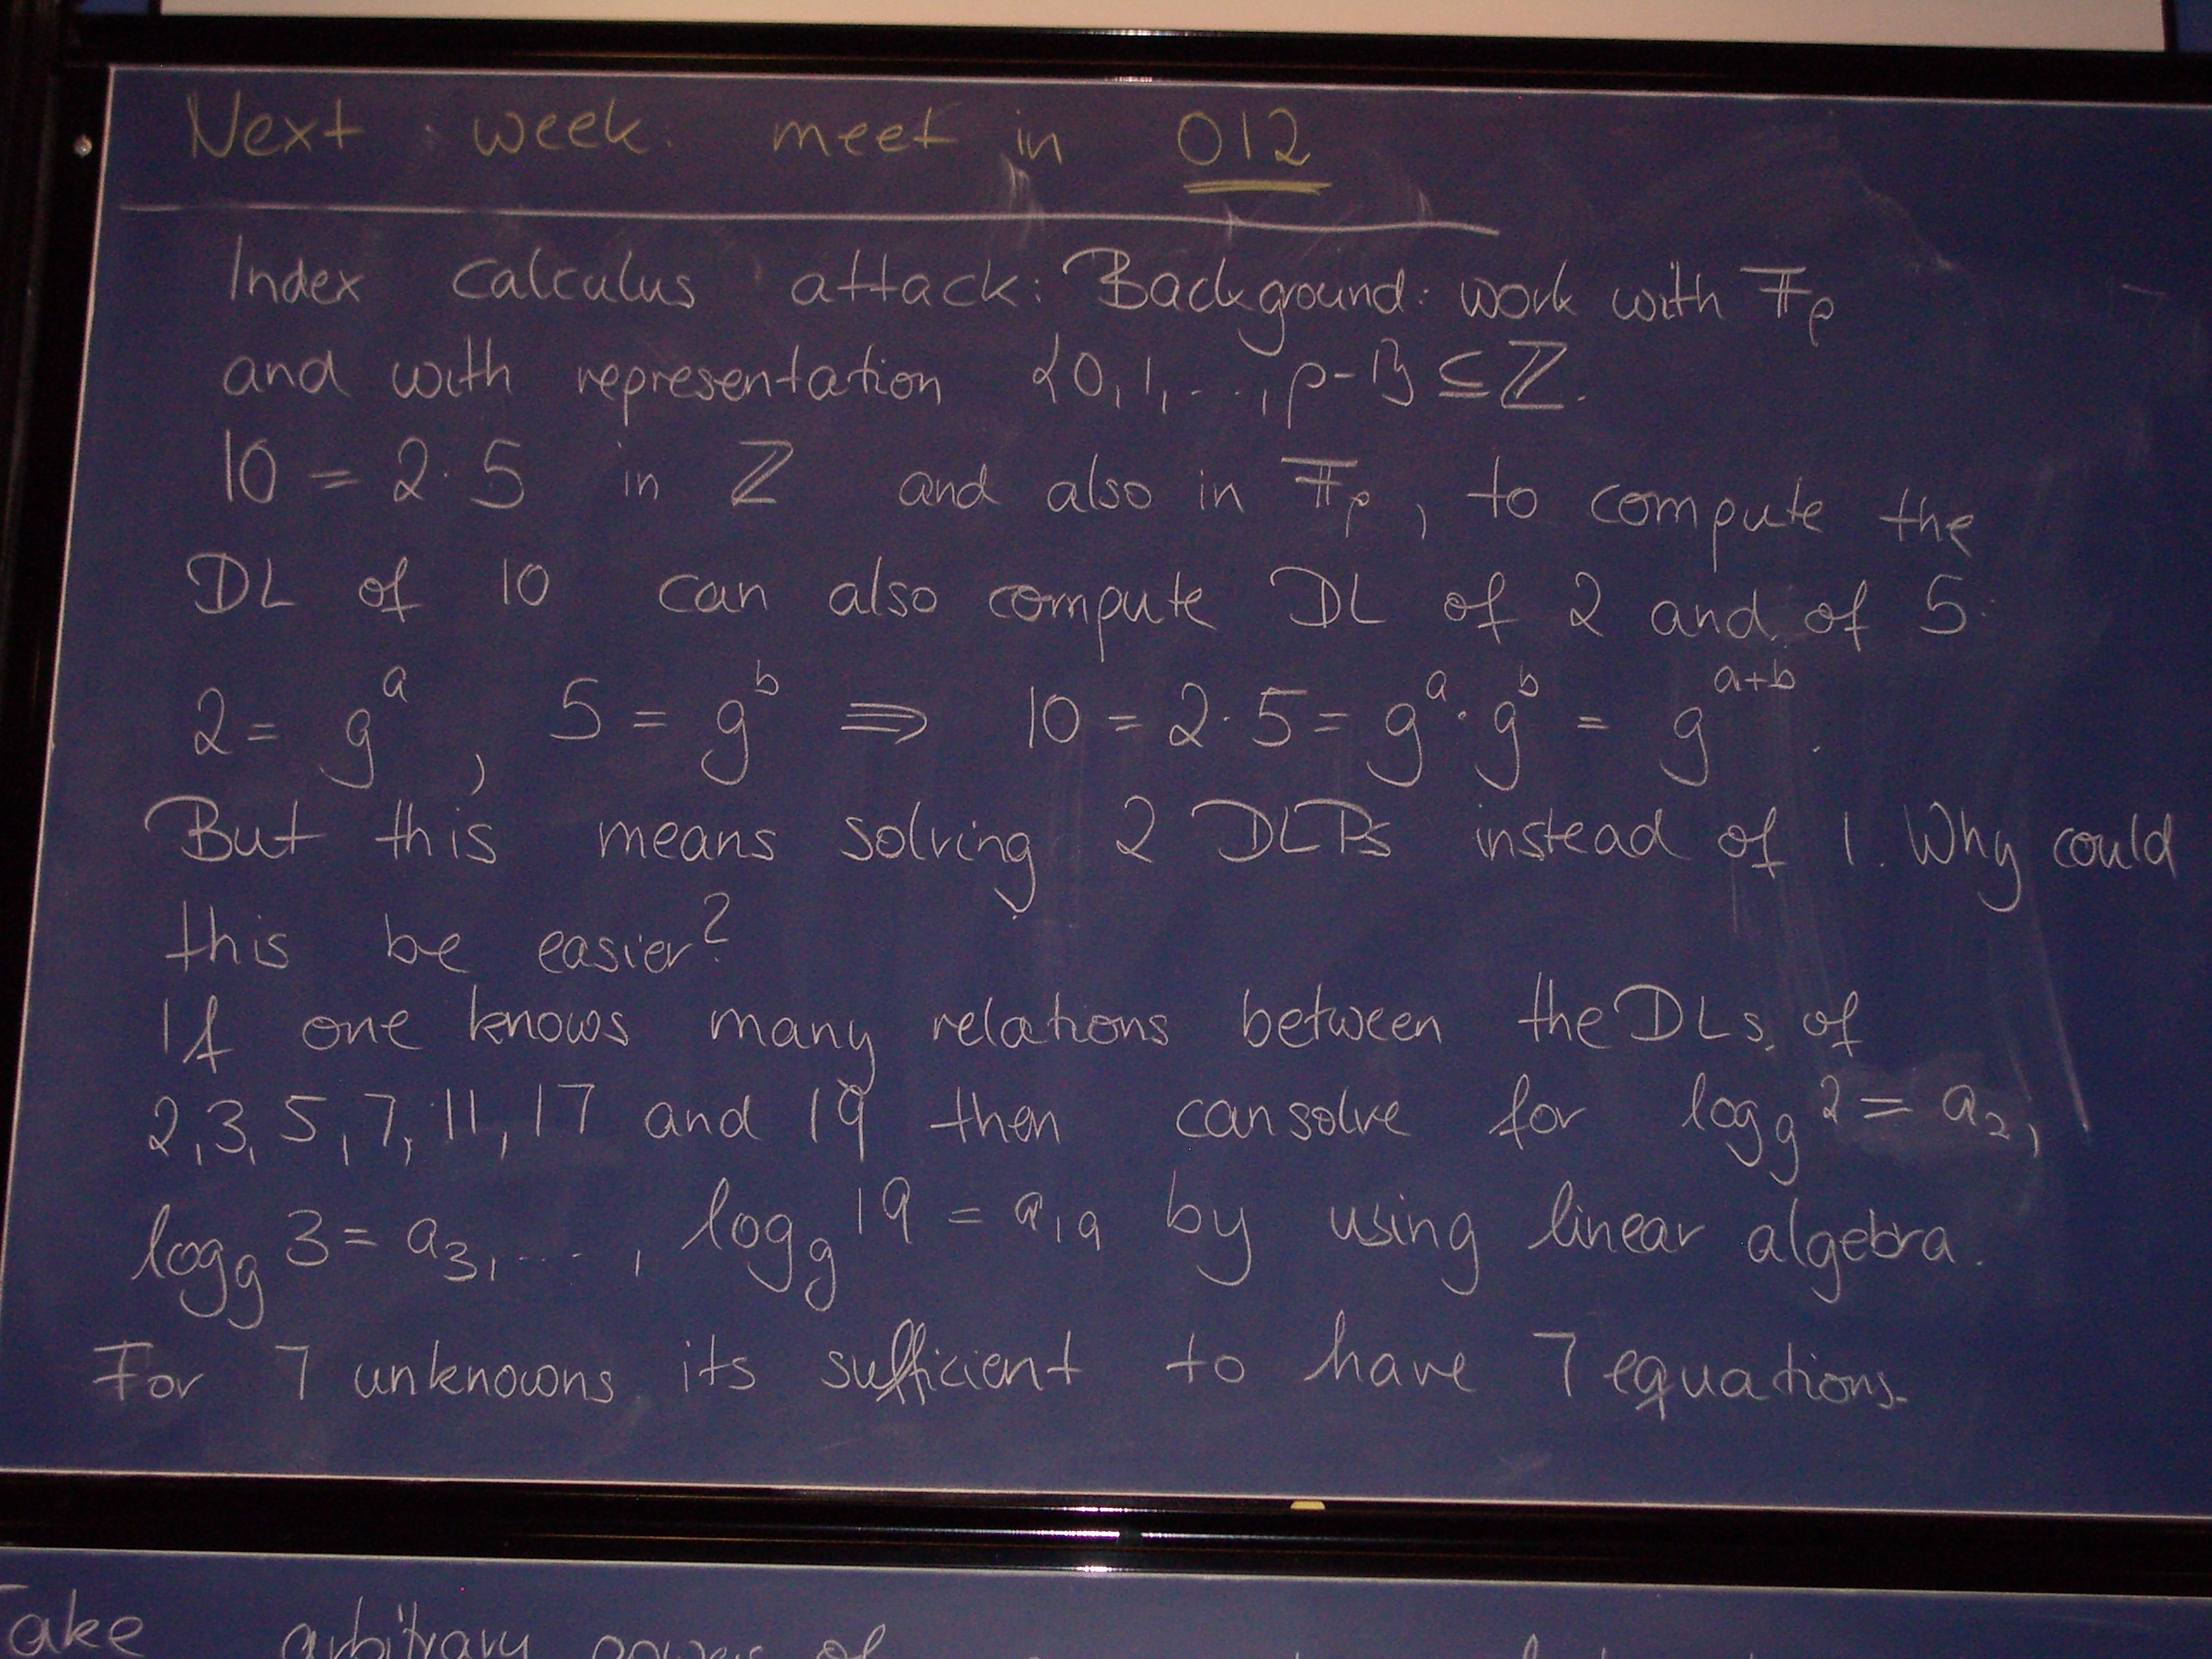 Next week meet in 012
Index calculus attack: Background: work with 𝔽ₚ
and with representation {0,1,...,p-1} ⊆ ℤ.
10 = 2·5 in ℤ and also in 𝔽ₚ, to compute the
DL of 10 can also compute DL of 2 and of 5.
2 = g^a, 5 = g^b ⇒ 10 = 2·5 = g^a·g^b = g^(a+b).
But this means solving 2 DLPs instead of 1. Why could
this be easier?
If one knows many relations between the DLs of
2,3,5,7,11,17 and 19 then can solve for log_g 2 = a_2,
log_g 3 = a_3,...., log_g 19 = a_19 by using linear algebra.
For 7 unknowns its sufficient to have 7 equations.
Take arbitrary power of